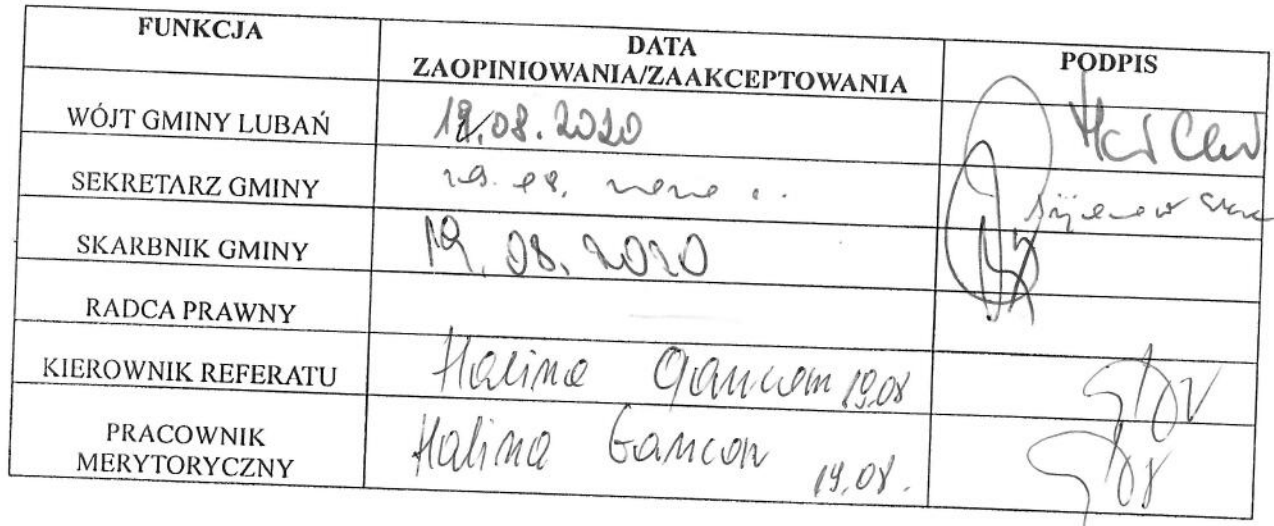 FUNKCJA
DATA
ZAOPINIOWANIA/ZAAKCEPTOWANIA
PODPIS
WÓJT GMINY LUBAŃ
19.08.2020
SEKRETARZ GMINY
SKARBNIK GMINY
19. 08. 2020
RADCA PRAWNY
KIEROWNIK REFERATU
Halina 19.08
PRACOWNIK
MERYTORYCZNY
Halina Gancon 19.08.